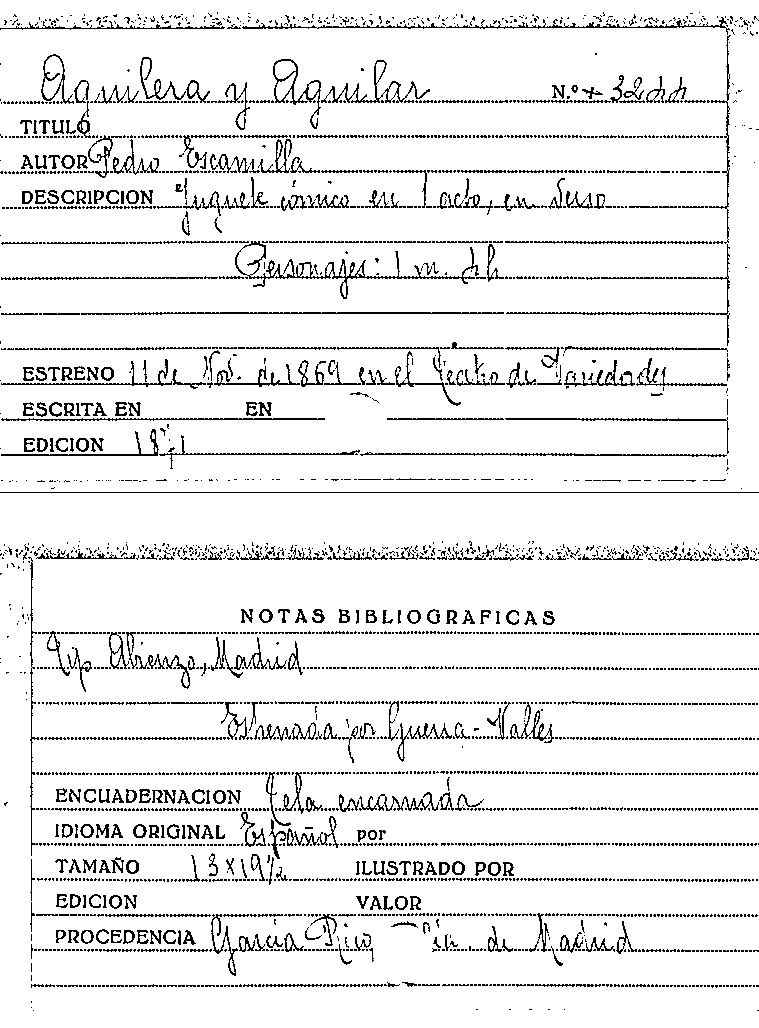 Aguilera y Aguilar N.º 3244
TITULO
AUTOR Pedro Escamilla
DESCRIPCION Juguete cómico en 1 acto, en verso
Personajes: 1 m. 4 h
ESTRENO 11 de Nov. de 1869 en el Teatro de Variedades
ESCRITA EN EN
EDICION 1871
NOTAS BIBLIOGRAFICAS
Tip Abienzo, Madrid
Estrenada por Guerra - Valles
ENCUADERNACION Tela encarnada
IDIOMA ORIGINAL Español por
TAMAÑO 13 x 19½ ILUSTRADO POR
EDICION VALOR
PROCEDENCIA García Rico, Cía. de Madrid